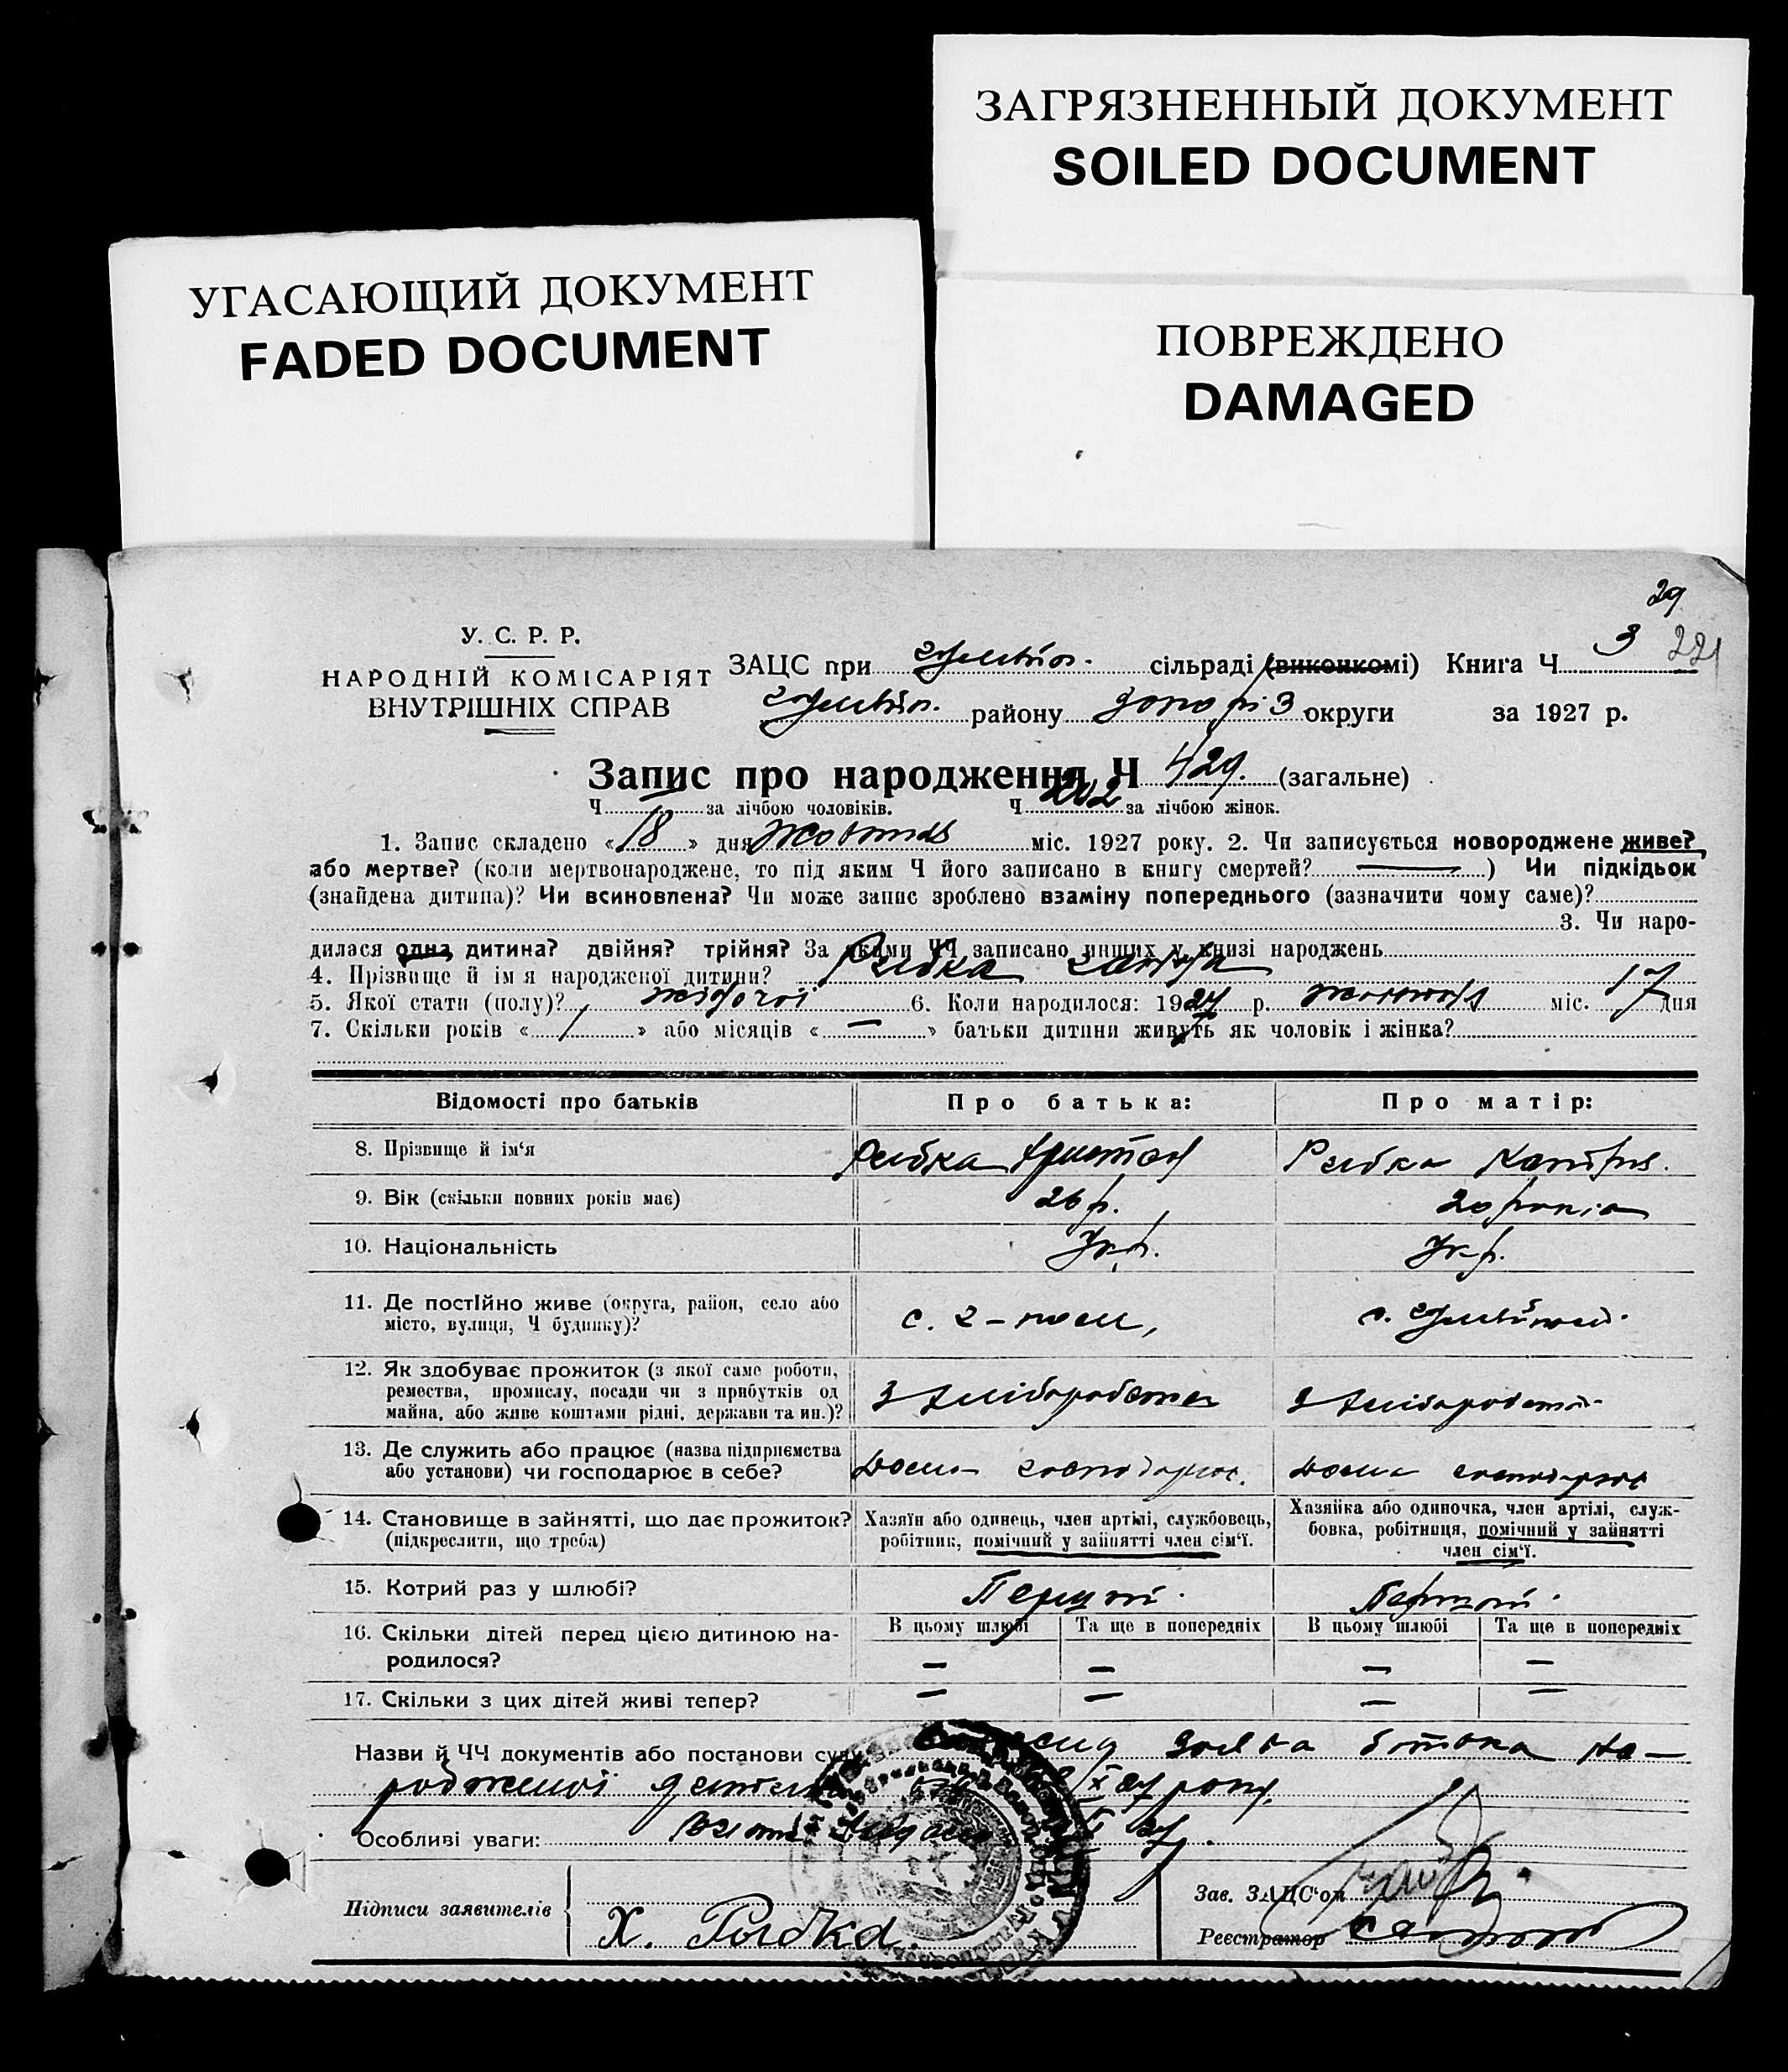 ЗАГРЯЗНЕННЫЙ ДОКУМЕНТ
SOILED DOCUMENT
УГАСАЮЩИЙ ДОКУМЕНТ
FADED DOCUMENT
ПОВРЕЖДЕНО
DAMAGED
29
221
У. С. Р. Р.
НАРОДНІЙ КОМІСАРІЯТ
ВНУТРІШНІХ СПРАВ
ЗАЦС при сільраді (виконкомі) Книга Ч 3
району округи за 1927 р.
Запис про народження Ч 429. (загальне)
Ч — за лічбою чоловіків. Ч 202 за лічбою жінок.
1. Запис складено « 18 » дня жовтня міс. 1927 року. 2. Чи записується новороджене живе?
або мертве? (коли мертвонароджене, то під яким Ч його записано в книгу смертей? — ) Чи підкідьок
(знайдена дитина)? Чи всиновлена? Чи може запис зроблено взаміну попереднього (зазначити чому саме)?
3. Чи наро-
дилася одна дитина? двійня? трійня? За якими ЧЧ записано инших у книзі народжень
4. Прізвище й ім я народженої дитини? Рибка
5. Якої стати (полу)? жіночої 6. Коли народилося: 1927 р. жовтня міс. 17 дня
7. Скільки років « 1 » або місяців « — » батьки дитини живуть як чоловік і жінка?
Відомості про батьків Про батька: Про матір:
8. Прізвище й ім‘я Рибка Рибка
9. Вік (скільки повних років має) 26 р. 20 років
10. Національність Укр. Укр.
11. Де постійно живе (округа, район, село або
місто, вулиця, Ч будинку)? с. с.
12. Як здобуває прожиток (з якої саме роботи,
ремества, промислу, посади чи з прибутків од
майна, або живе коштами рідні, держави та ин.)? З хліборобства З хліборобства
13. Де служить або працює (назва підприємства
або установи) чи господарює в себе? Дома господарює. Дома господарює
14. Становище в зайнятті, що дає прожиток?
(підкреслити, що треба)
Хазяїн або одинець, член артілі, службовець,
робітник, помічний у зайнятті член сім‘ї.
Хазяйка або одиночка, член артілі, служ-
бовка, робітниця, помічний у зайнятті
член сім‘ї.
15. Котрий раз у шлюбі? Перший. Перший.
16. Скільки дітей перед цією дитиною на-
родилося?
В цьому шлюбі Та ще в попередніх В цьому шлюбі Та ще в попередніх
— — — —
17. Скільки з цих дітей живі тепер? — — — —
Назви й ЧЧ документів або постанови суду заява батька на-
родженої дитини року.
Особливі уваги:
Підписи заявителів
Х. Рибка.
Зав. ЗАЦС‘ом
Реєстратор